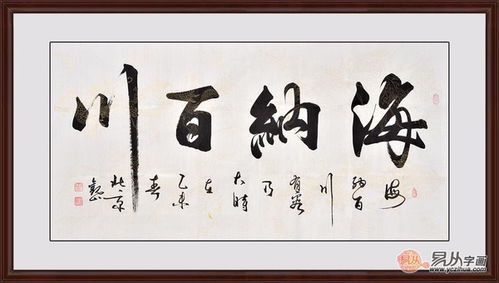 海納百川
海納百
川
有容
乃
大時
在
乙未
春
北京
易从字画
www.yczihua.com